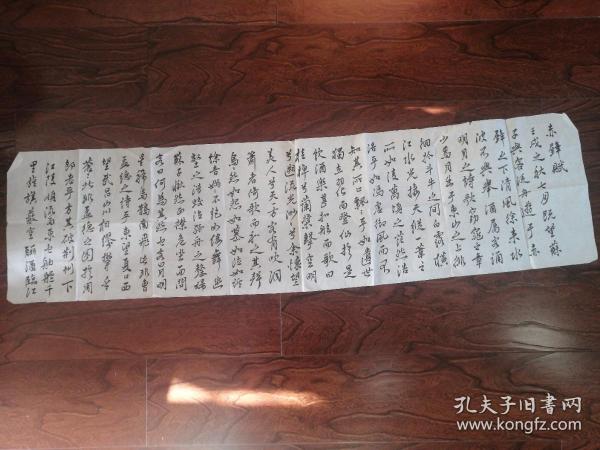 赤壁賦
壬戌之秋七月既望蘇
子與客泛舟遊于赤
壁之下清風徐來水
波不興舉酒屬客誦
明月之詩歌窈窕之章
少焉月出于東山之上徘
徊於斗牛之間白露橫
江水光接天縱一葦之
所如凌萬頃之茫然浩
浩乎如馮虛御風而不
知其所止飄飄乎如遺世
獨立羽化而登仙於是
飲酒樂甚扣舷而歌曰
桂棹兮蘭槳擊空明
兮遡流光渺渺兮余懷望
美人兮天一方客有吹洞
簫者倚歌而和之其聲
嗚然如怨如慕如泣如訴
餘音嫋嫋不絕如縷舞幽
壑之潛蛟泣孤舟之嫠婦
蘇子愀然正襟危坐而問
客曰何為其然也客曰月明
星稀烏鵲南飛此非曹
孟德之詩乎東望夏口西
望武昌山川相繆鬱乎
蒼蒼此非孟德之困於周
郎者乎方其破荊州下
江陵順流而東也舳艫千
里旌旗蔽空釃酒臨江
孔夫子旧书网
www.kongfz.com